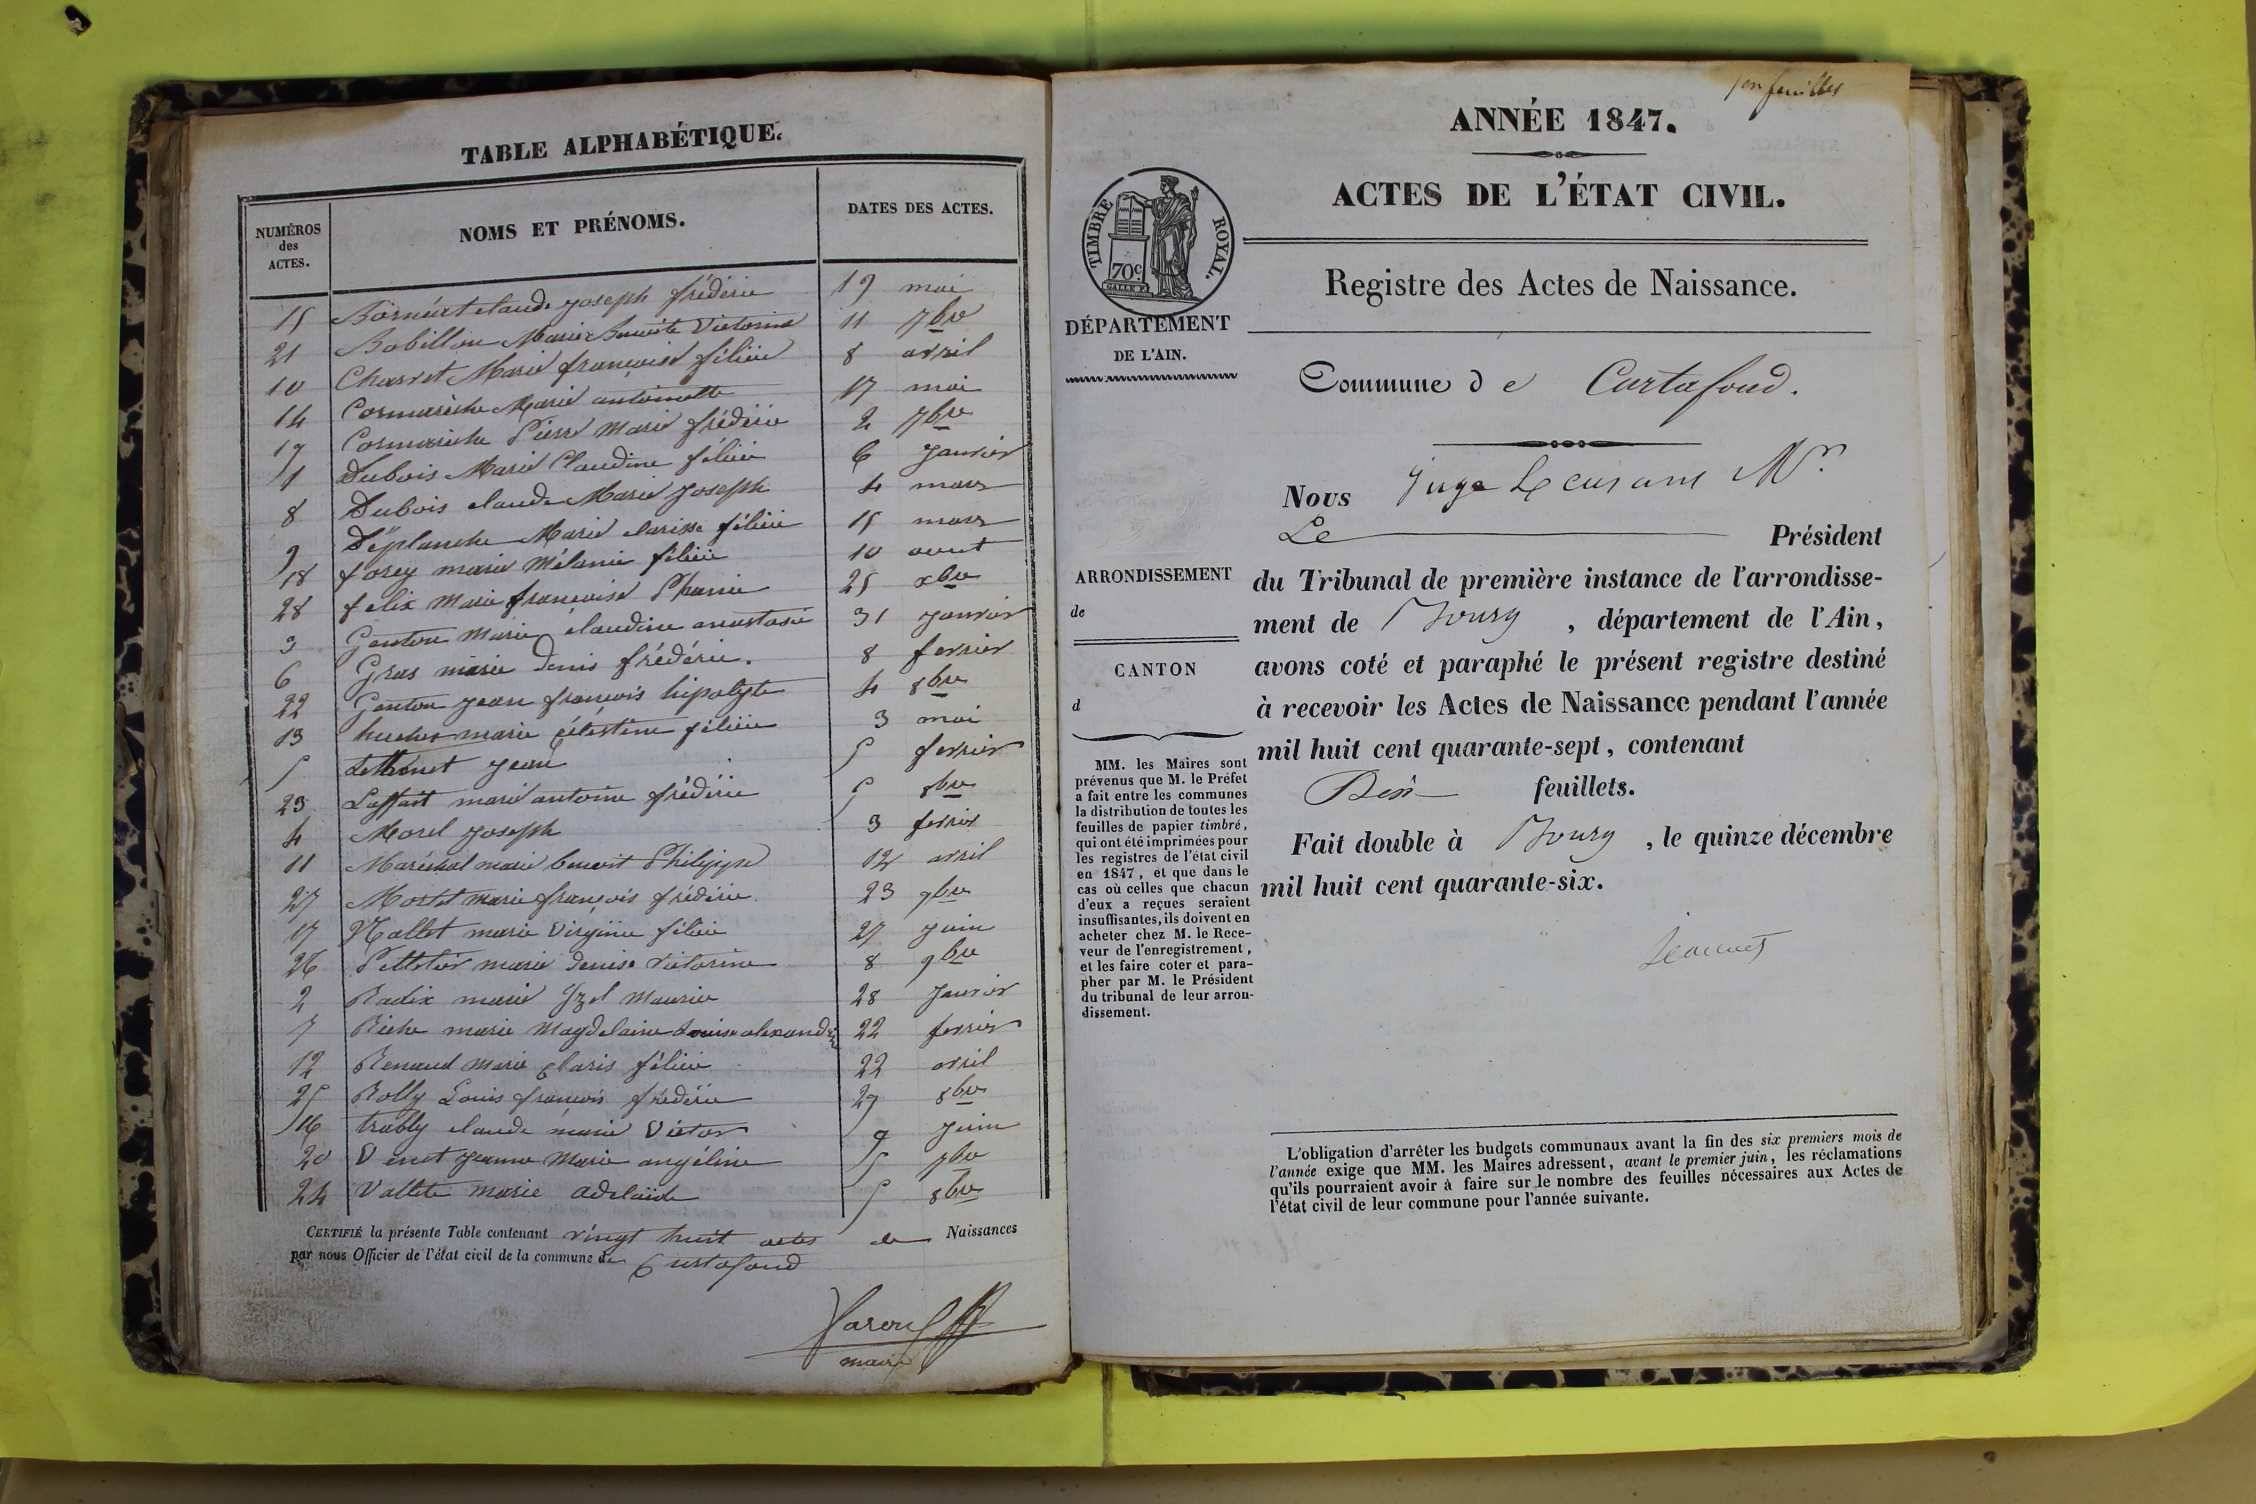 TABLE ALPHABÉTIQUE.
NUMÉROS des ACTES. NOMS ET PRÉNOMS. DATES DES ACTES.
15 claude joseph frédéric 19 mai
21 Bobillon Marie Benoite Victorine 11 7bre
10 Charvet Marie françoise féliciie 8 avril
14 Cormarèche Marie antoinette 17 mai
19 Cormarèche Pierre Marie frédéric 2 7bre
1 Dubois Marie Claudine féliciie 6 Janvier
8 Dubois claude Marie Joseph 4 mars
9 Déplanche Marie clarisse féliciie 15 mars
18 forey marie Mélanie féliciie 10 aout
28 felix marie françoise Phanie 25 xbre
3 Genton marie claudine anastasie 31 Janvier
6 Gras marie denis frédéric. 8 fevrier
22 Genton jean françois hipolyte 4 8bre
13 marie célestine féliciie 3 mai
5 jean 5 fevrier
23 marie antoine frédéric 5 8bre
4 Morel joseph 3 fevrier
11 Maréchal marie benoit Philippe 12 avril
27 Mortet marie françois frédéric 23 9bre
17 Nallet marie Virginie féliciie 27 juin
26 Pelletier marie denise victorine 8 9bre
2 Radix marie Maurice 28 Janvier
7 Riche marie Magdelaine Louise alexandrine 22 fevrier
12 Renaud marie claris féliciie 22 avril
25 Rolly Louis françois frédéric 29 8bre
16 trably claude marie Victor 9 juin
20 Venet jeanne Marie angéline 5 7bre
24 Vallete marie adelaïde 5 8bre
CERTIFIÉ la présente Table contenant vingt huit actes de Naissances
par nous Officier de l'état civil de la commune de Curtafond
maire
feuilles
ANNÉE 1847.
ACTES DE L'ÉTAT CIVIL.
TIMBRE ROYAL.
70c
Registre des Actes de Naissance.
DÉPARTEMENT
DE L'AIN.
Commune de Curtafond.
Nous Juge Mr
Le Président
ARRONDISSEMENT
de
CANTON
d
du Tribunal de première instance de l'arrondisse-
ment de Bourg, département de l'Ain,
avons coté et paraphé le présent registre destiné
à recevoir les Actes de Naissance pendant l'année
mil huit cent quarante-sept, contenant
feuillets.
Fait double à Bourg, le quinze décembre
mil huit cent quarante-six.
MM. les Maires sont
prévenus que M. le Préfet
a fait entre les communes
la distribution de toutes les
feuilles de papier timbré,
qui ont été imprimées pour
les registres de l'état civil
en 1847, et que dans le
cas où celles que chacun
d'eux a reçues seraient
insuffisantes, ils doivent en
acheter chez M. le Rece-
veur de l'enregistrement,
et les faire coter et para-
pher par M. le Président
du tribunal de leur arron-
dissement.
L'obligation d'arrêter les budgets communaux avant la fin des six premiers mois de
l'année exige que MM. les Maires adressent, avant le premier juin, les réclamations
qu'ils pourraient avoir à faire sur le nombre des feuilles nécessaires aux Actes de
l'état civil de leur commune pour l'année suivante.